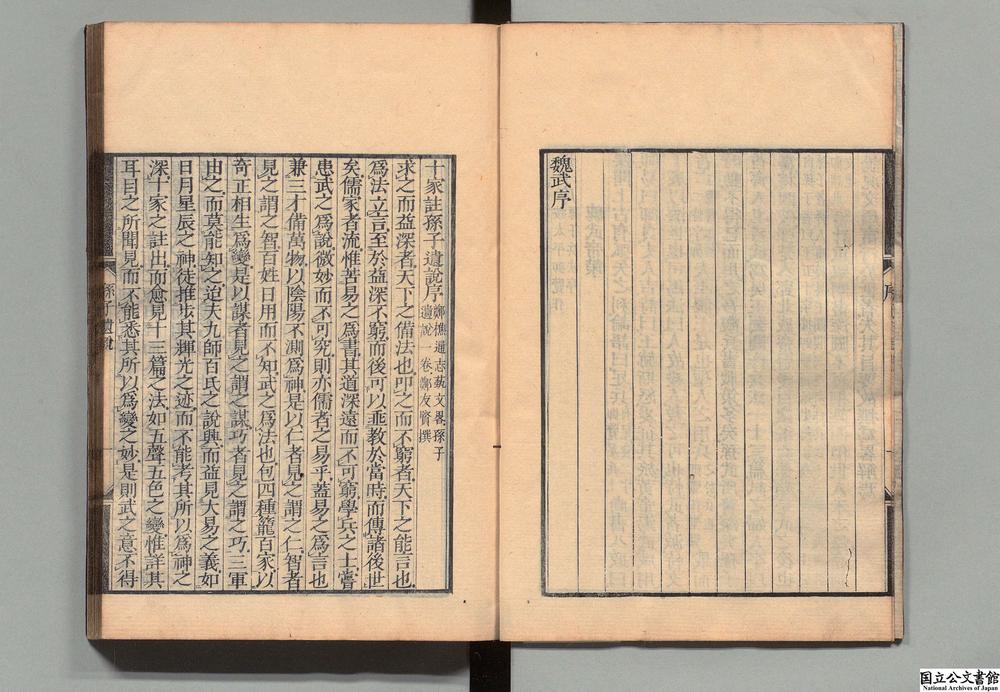 魏武序
序
十家註孫子遺說序
鄭樵通志藝文畧孫子
遺說一卷鄭友賢撰
求之而益深者天下之備法也叩之而不窮者天下之能言也
爲法立言至於益深不窮而後可以垂教於當時而傳諸後世
矣儒家者流惟苦易之爲書其道深遠而不可窮學兵之士嘗
患武之爲說微妙而不可究則亦儒者之易乎蓋易之爲言也
兼三才備萬物以陰陽不測爲神是以仁者見之謂之仁智者
見之謂之智百姓日用而不知武之爲法也包四種籠百家以
奇正相生爲變是以謀者見之謂之謀巧者見之謂之巧三軍
由之而莫能知之迨夫九師百氏之說興而益見大易之義如
日月星辰之神徒推步其輝光之迹而不能考其所以爲神之
深十家之註出而愈見十三篇之法如五聲五色之變惟詳其
耳目之所聞見而不能悉其所以爲變之妙是則武之意不得
孫子遺說
国立公文書館
National Archives of Japan